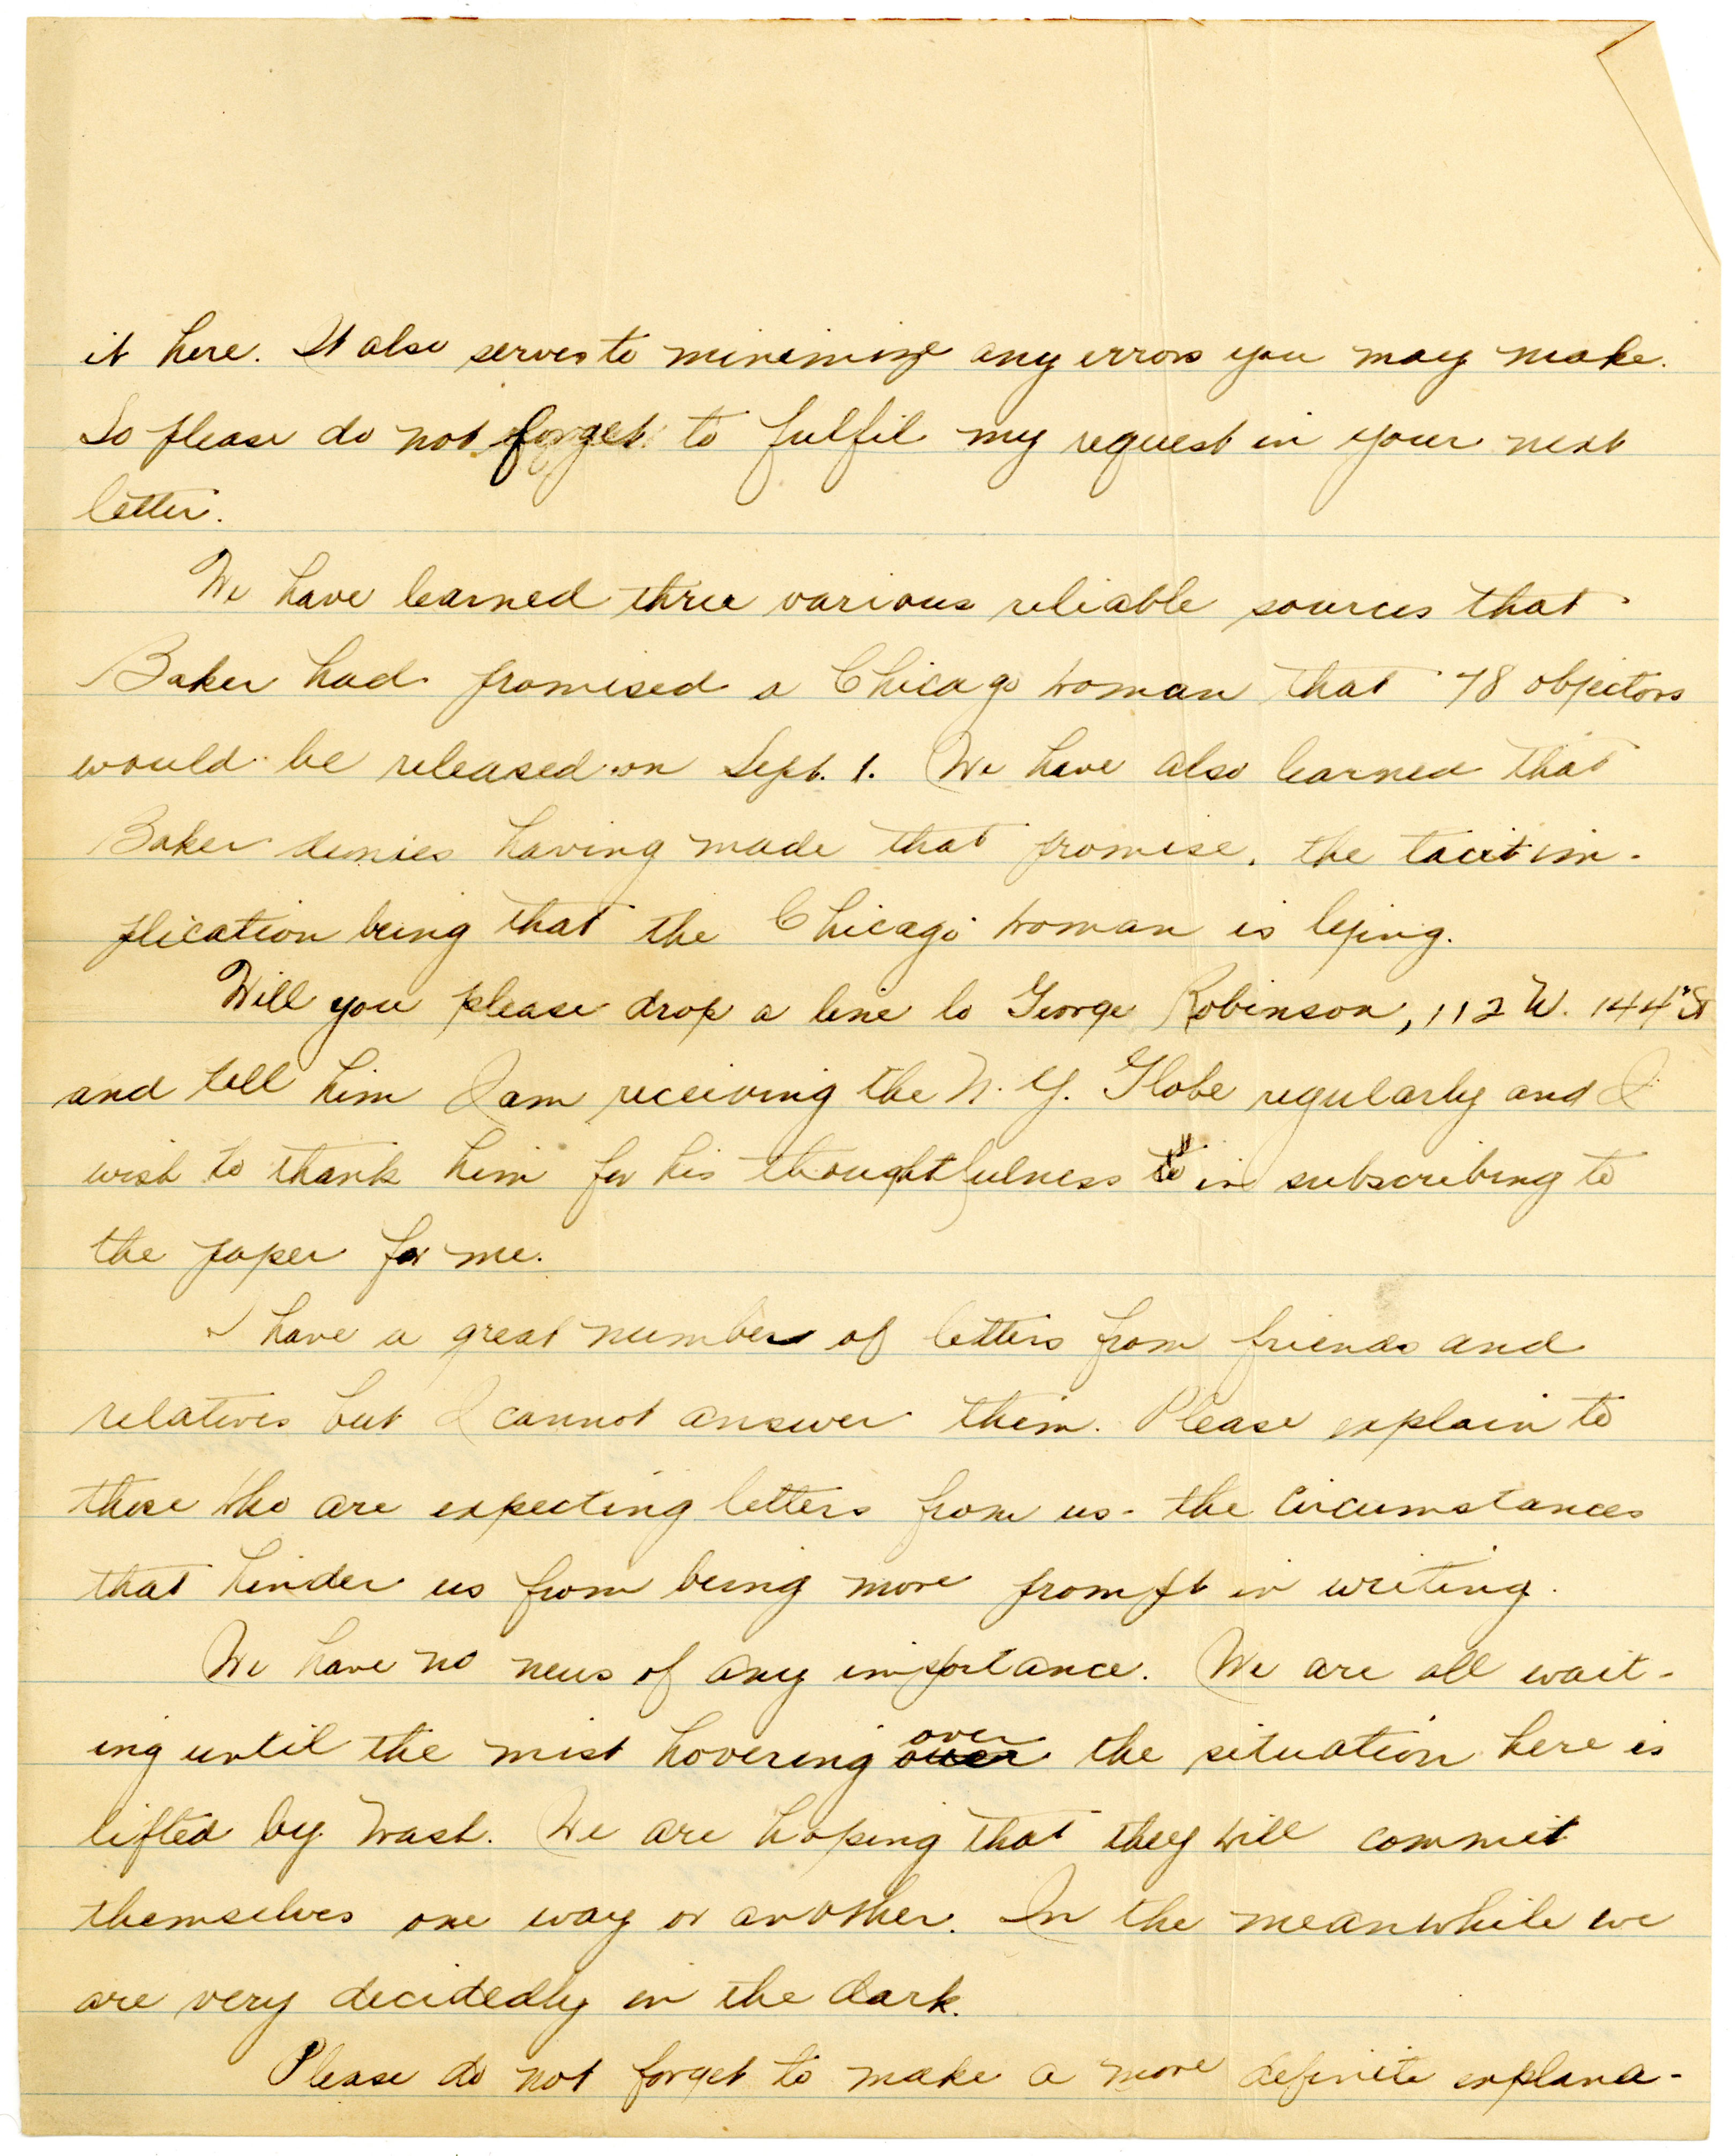 it here. It also serves to minimize any errors you may make.
So please do not forget to fulfil my request in your next
letter.
We have learned three various reliable sources that
Baker had promised a Chicago woman that 78 objectors
would be released on Sept. 1. We have also learned that
Baker denies having made that promise, the tacit im-
plication being that the Chicago woman is lying.
Will you please drop a line to George Robinson, 112 W. 144" St
and tell him I am receiving the N. Y. Globe regularly and I
wish to thank him for his thoughtfulness to in subscribing to
the paper for me.
I have a great number of letters from friends and
relatives but I cannot answer them. Please explain to
those who are expecting letters from us - the circumstances
that hinder us from being more prompt in writing.
We have no news of any importance. We are all wait-
ing until the mist hovering over over the situation here is
lifted by Wash. We are hoping that they will commit
themselves one way or another. In the meanwhile we
are very decidedly in the dark.
Please do not forget to make a more definite explana-